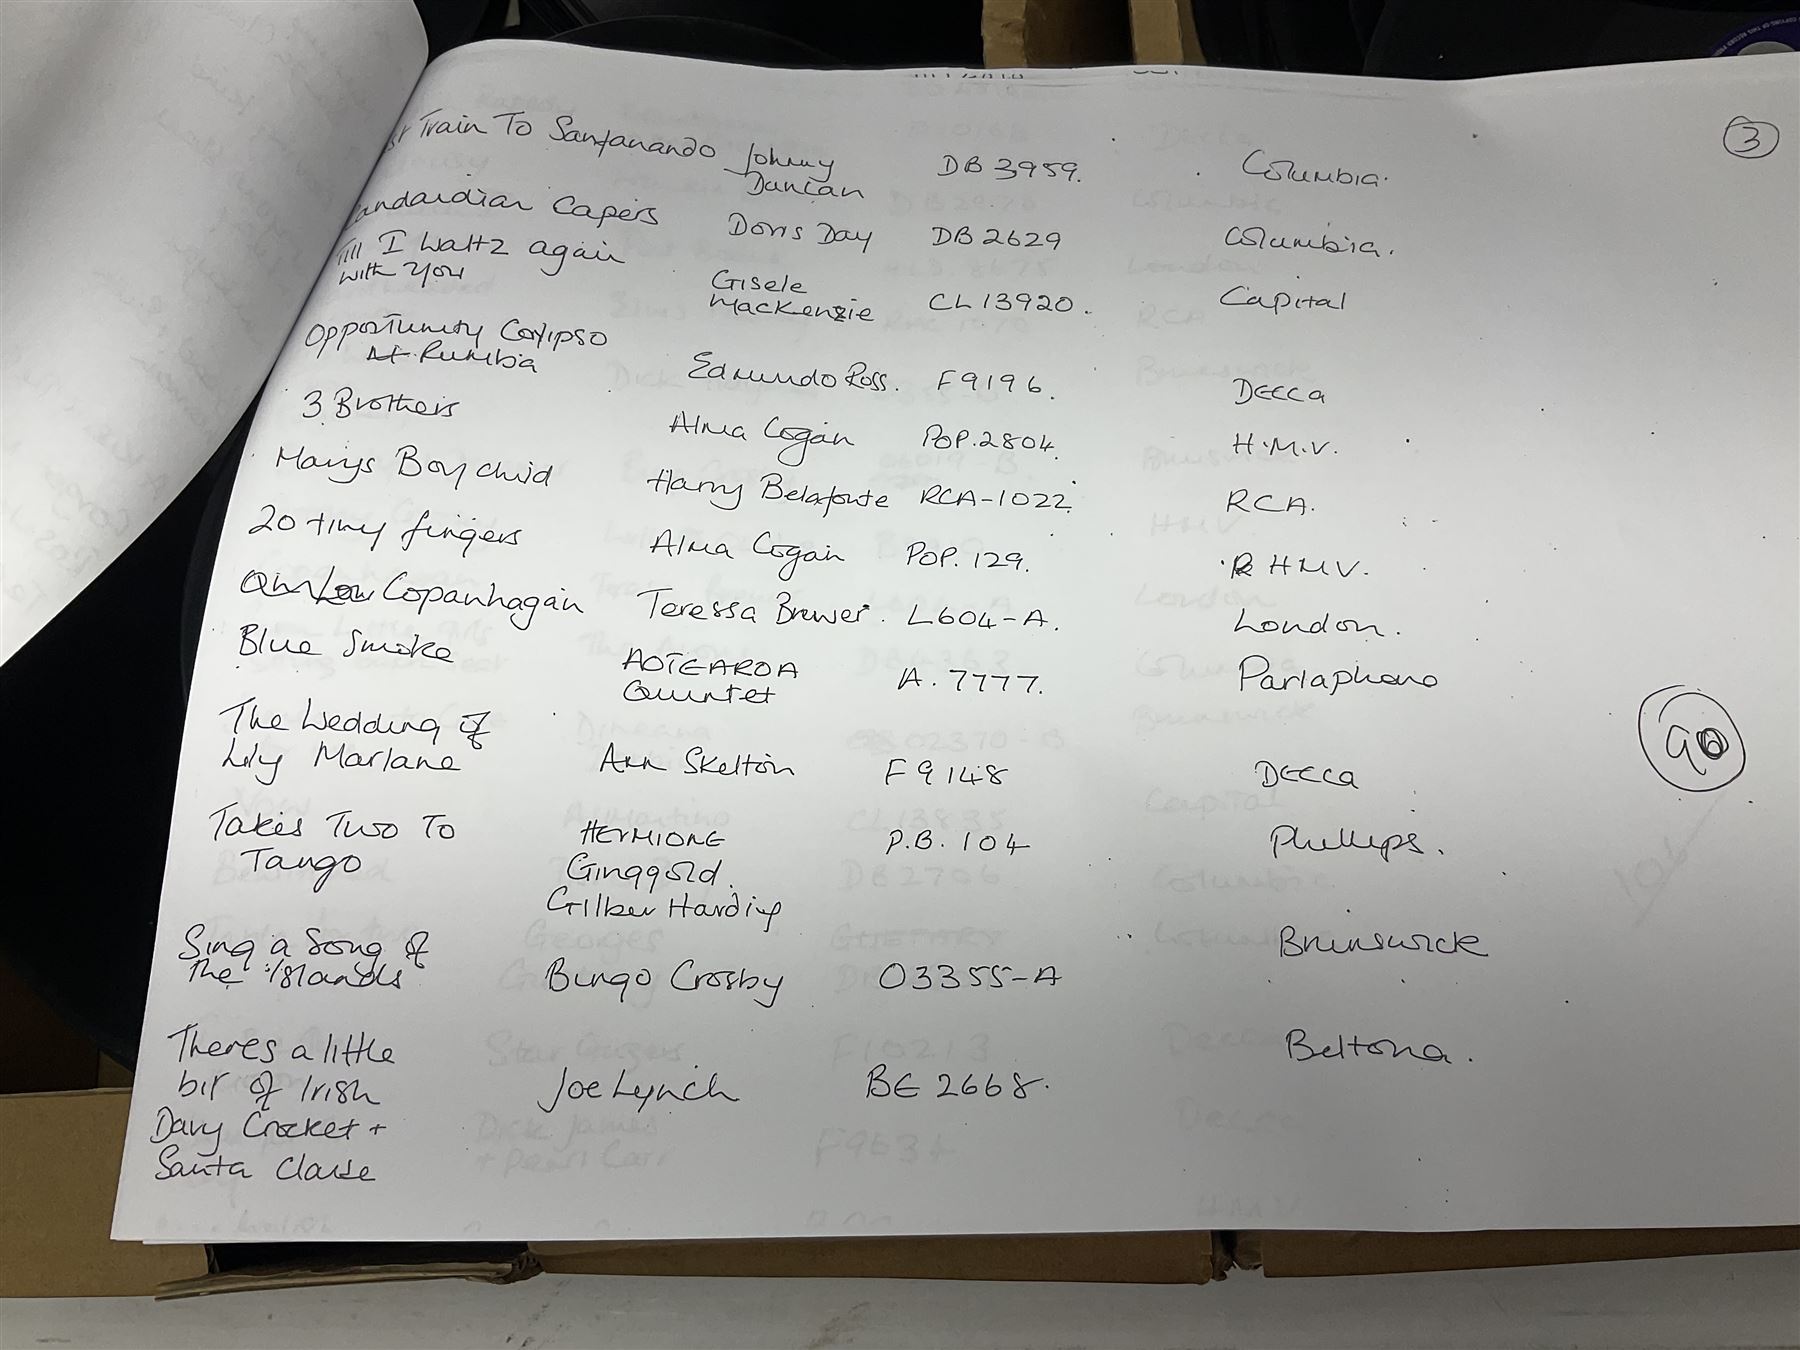 Train To Sanfanando Johnny DB 3959. Columbia. 3
Duncan
andardian Capers Doris Day DB 2629 Columbia.
Till I Waltz again Gisele
with you MacKenzie CL 13920. Capital
Opportunity Calypso
Rumba Edmundo Ross. F9196. DECCA
3 Brothers Alma Cogan POP. 2804. H.M.V.
Marys Boy child Harry Belafonte RCA-1022 RCA.
20 tiny fingers Alma Cogan POP. 129. HMV.
Copanhagan Teressa Brewer. L604-A. London.
Blue Smoke AOTEAROA A. 7777. Parlaphono
Quintet
The Wedding of
Lily Marlane Ann Skelton F9148 DECCA 90
Takes Two To HERMIONE P.B. 104 Phillips.
Tango Ginggold.
Gilber Harding
Sing a Song of Brunswick
The Islands Bingo Crosby 03355-A
Theres a little Beltona.
bit of Irish Joe Lynch BE 2668.
Davy Crocket +
Santa Clause